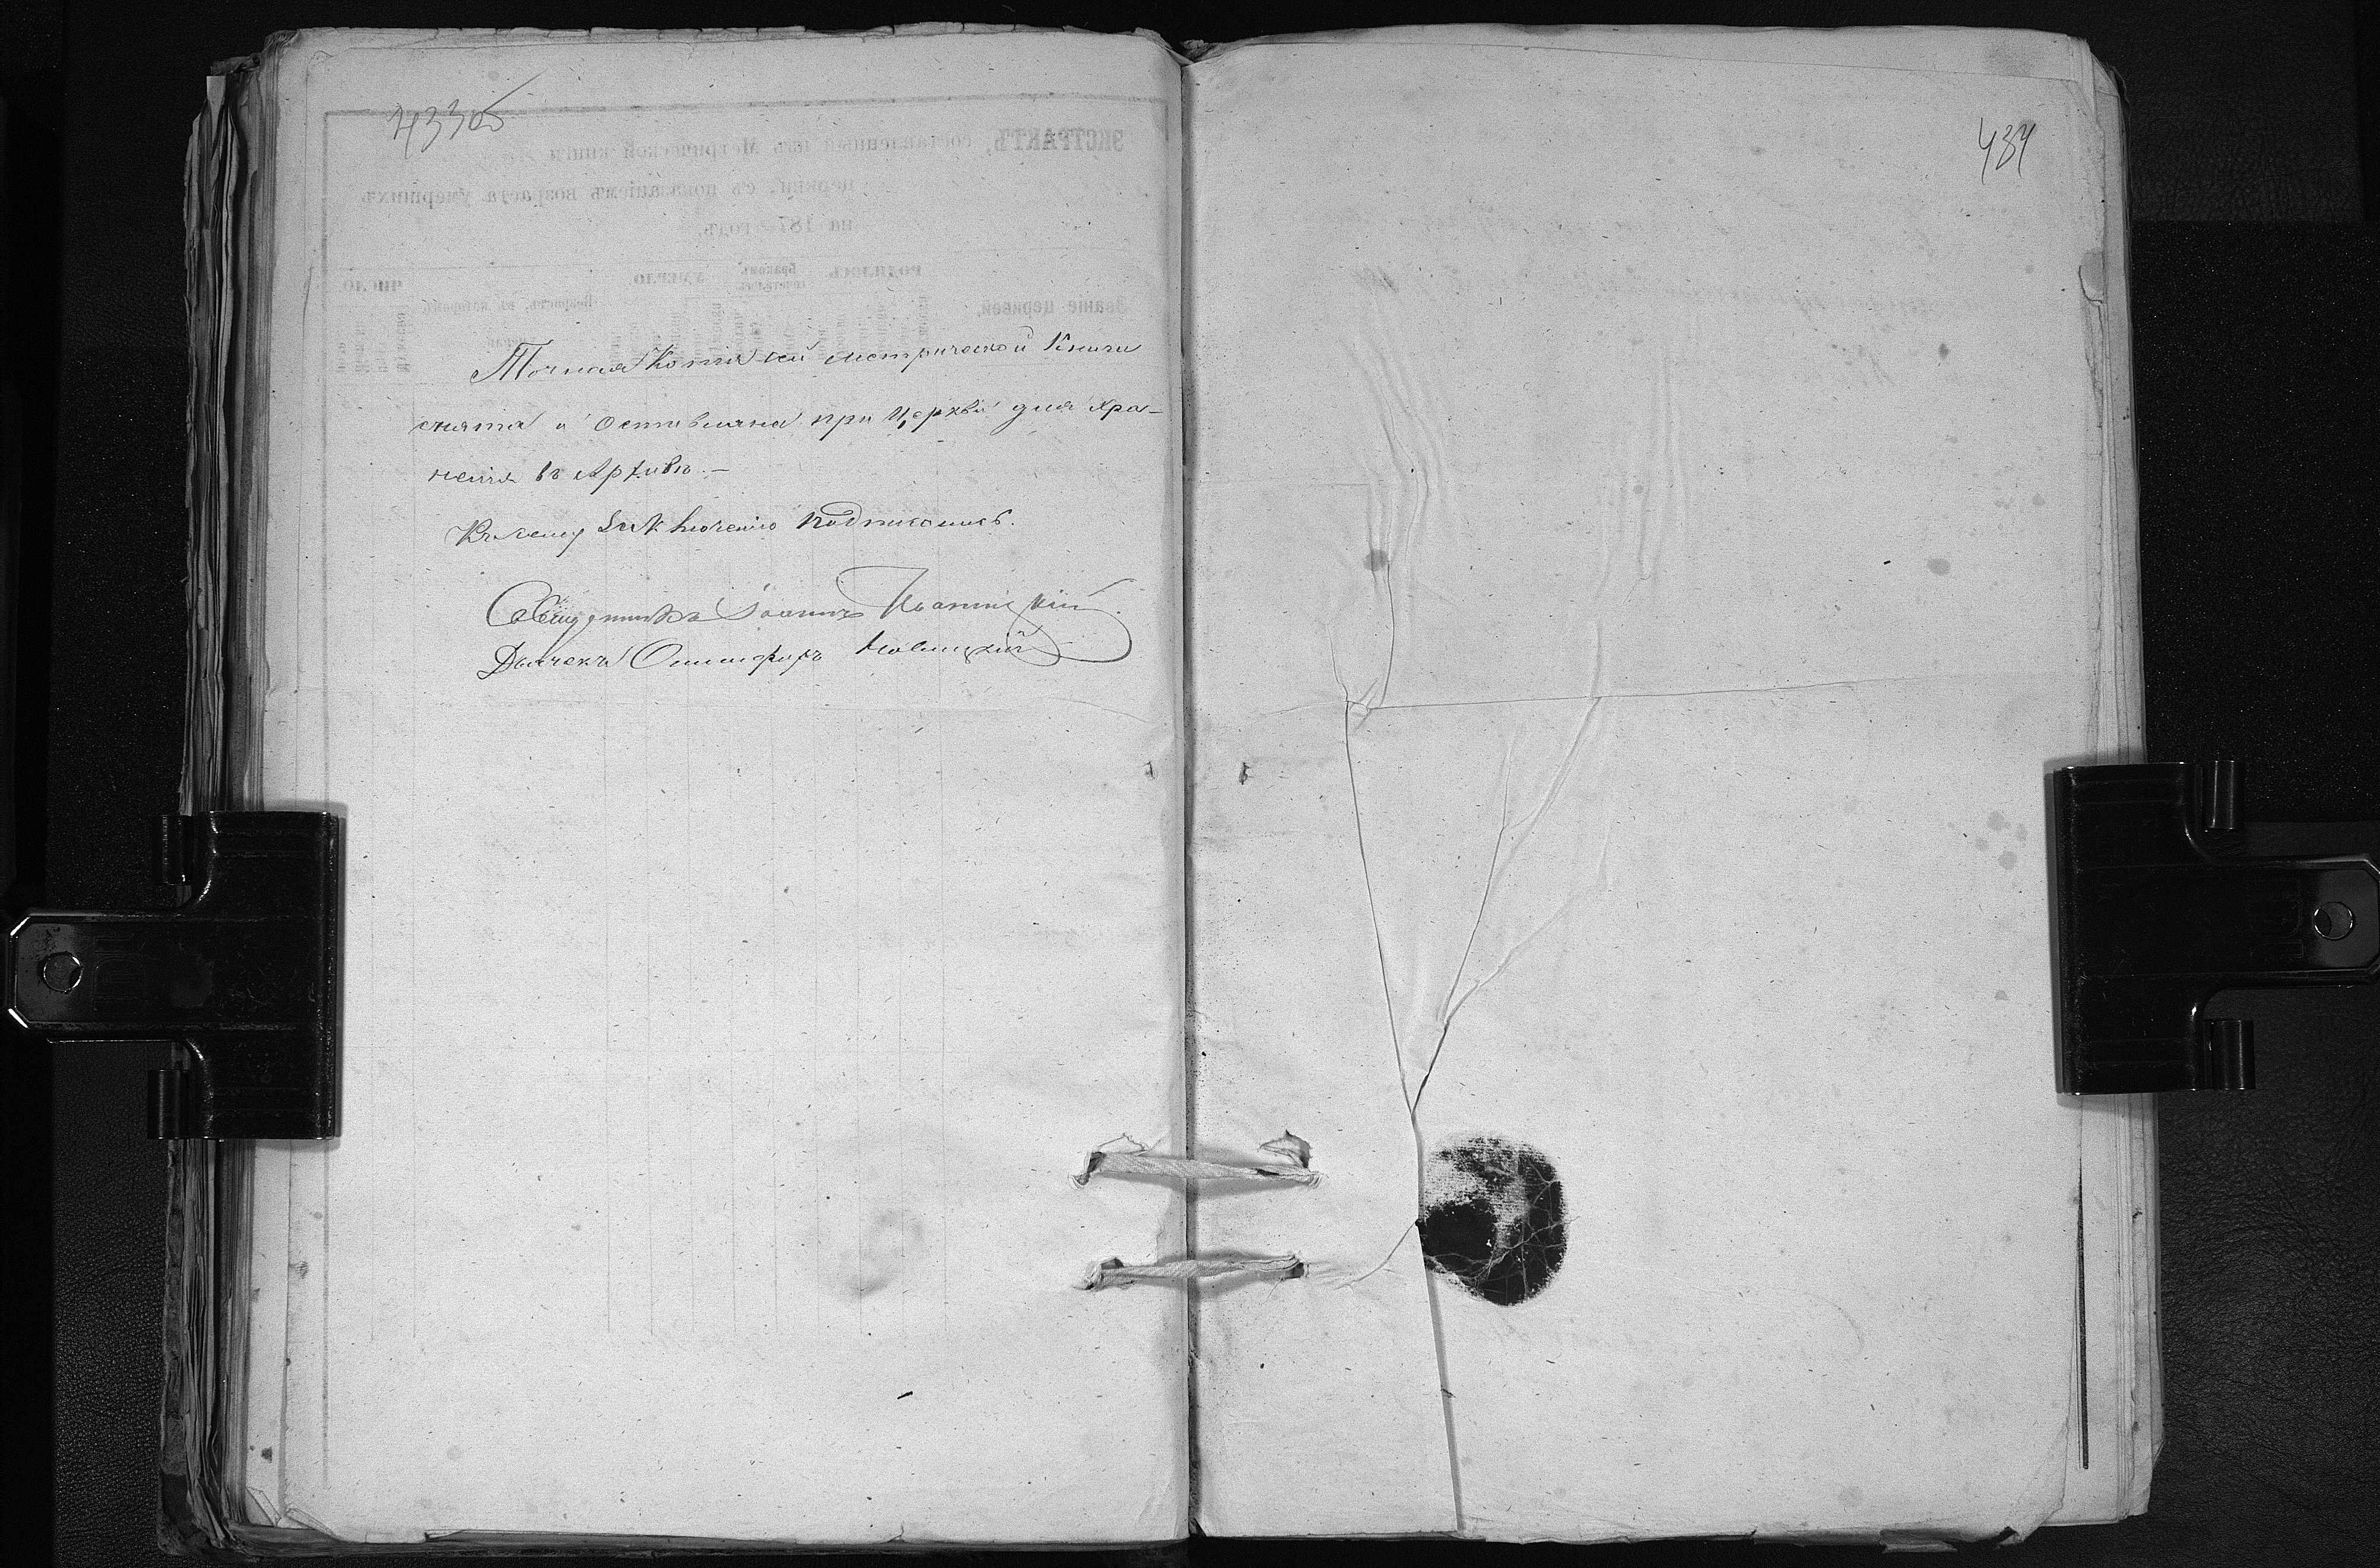 433об
434
Точная Копія сей метрической Книги
снята и оставлена при Церкви для хра-
ненія въ Архивѣ. —
Къ сему заключенію подписались.
Священникъ Іоаннъ
Дьячекъ Новицкій